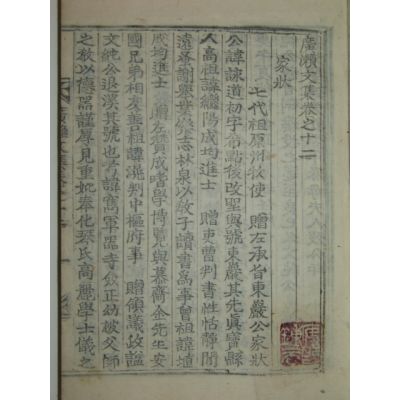 廣瀨文集卷之十二
家狀
七代祖原州牧使 贈左承旨東巖公家狀
公諱詠道初字希點後改聖與號東巖其先眞寶縣
人高祖諱繼陽成均進士 贈吏曹判書性恬靜閒
遠蚤謝擧業養志林泉以敎子讀書爲事曾祖諱埴
成均進士 贈左贊成嗜學博覽與慕齋金先生安
國兄弟相友善祖諱滉判中樞府事 贈領議政諡
文純公退溪其號也考諱寯軍器寺僉正幼被父師
之敎以德器謹厚見重妣奉化琴氏高麗學士儀之